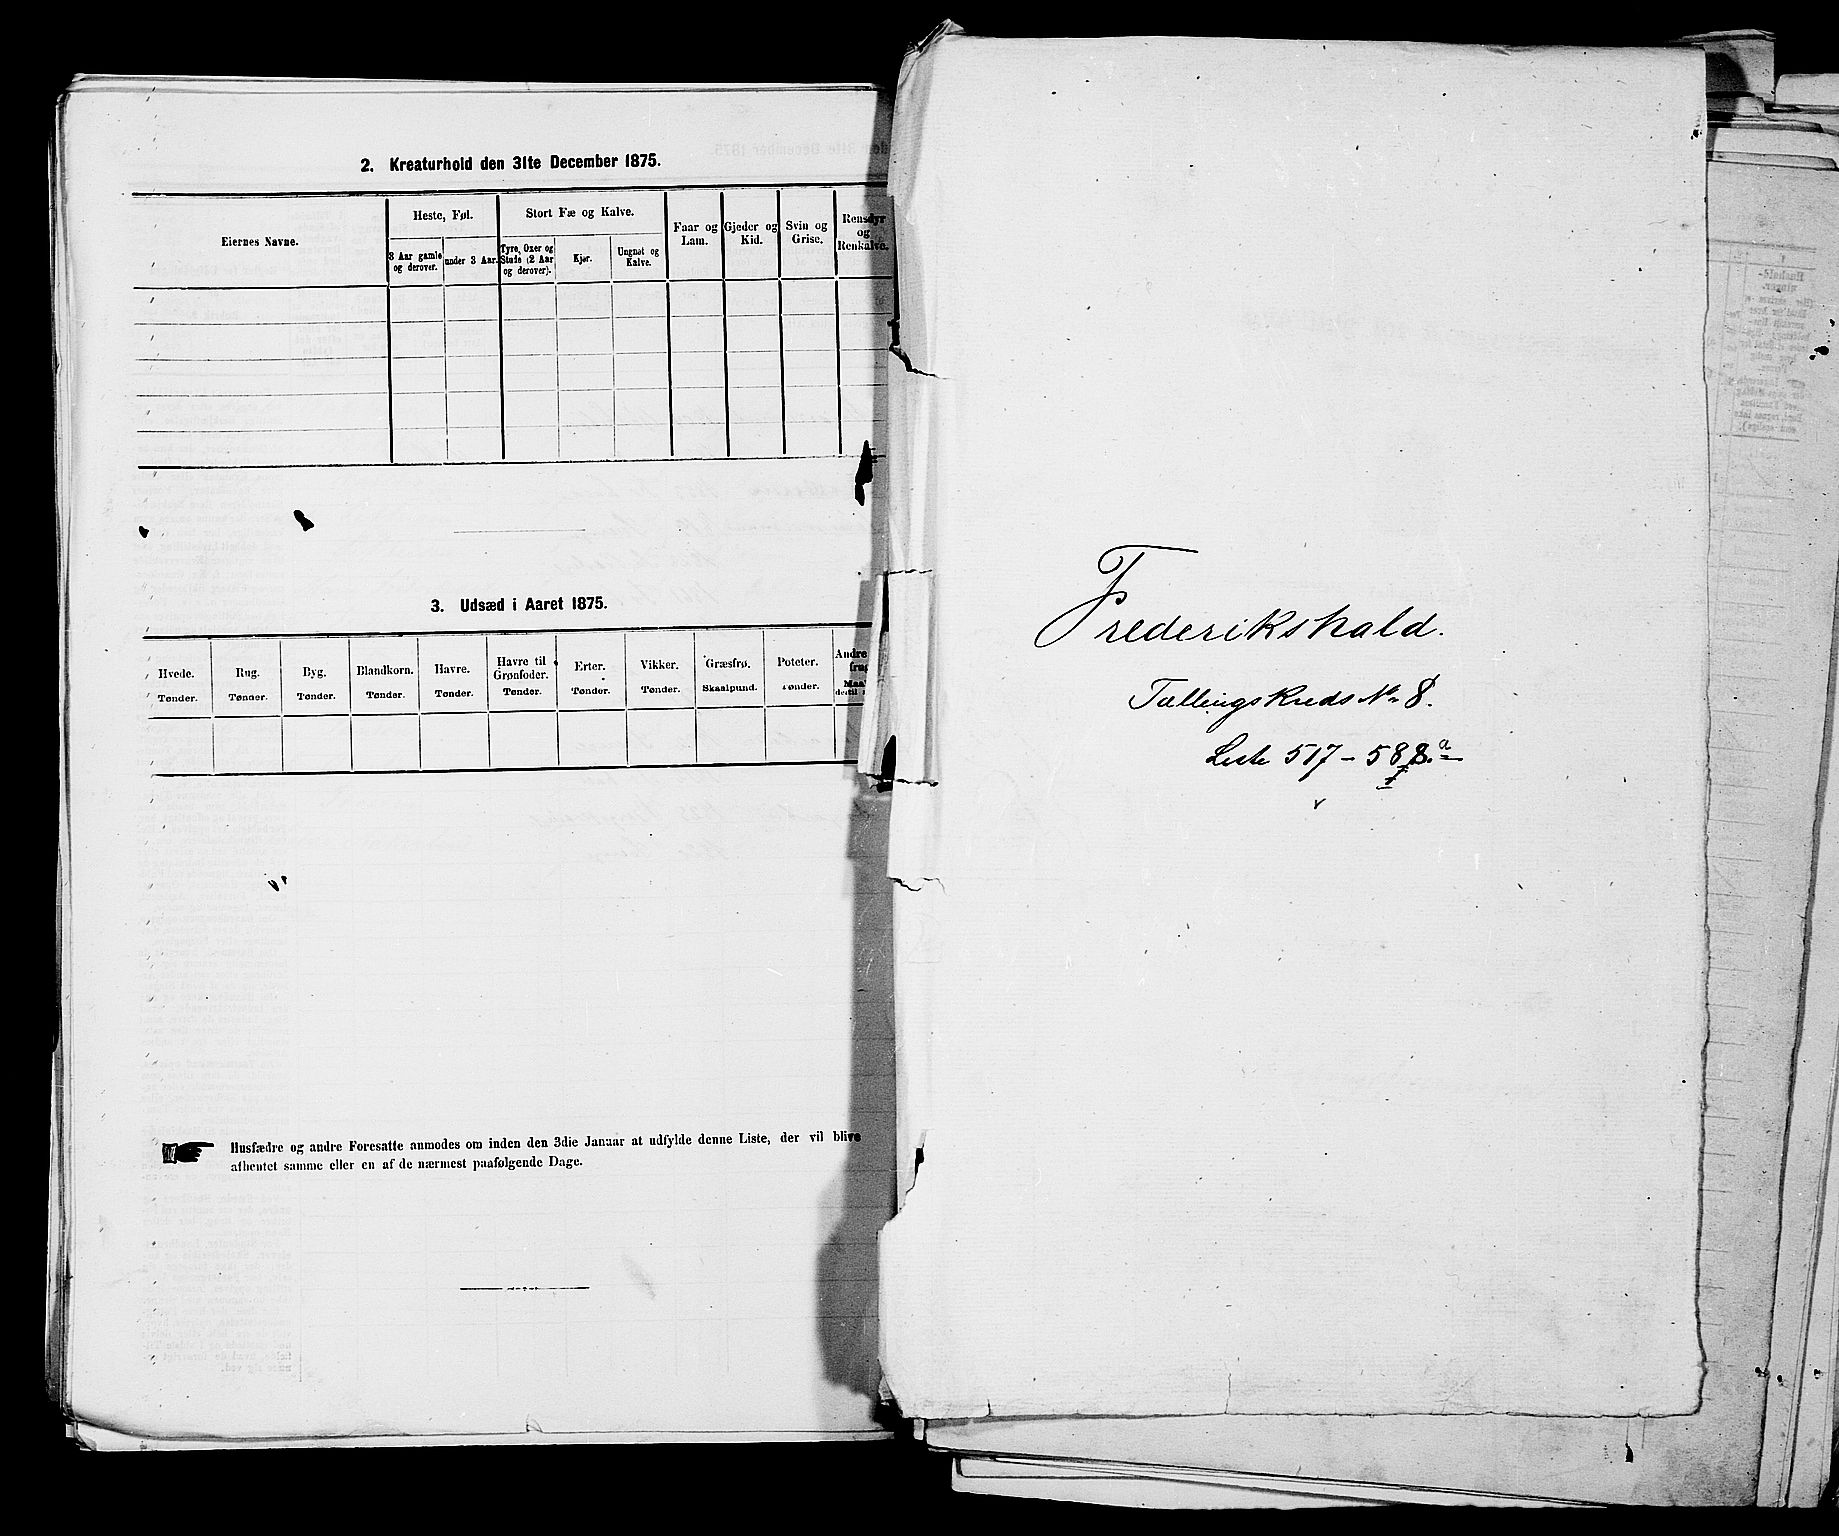 2. Kreaturhold den 31te December 1875.
Eiernes Navne.
Heste, Føl.
Stort Fæ og Kalve.
Faar og
Lam.
Gjeder og
Kid.
Svin og
Grise.
Rensdyr
og
Renkalve.
3 Aar gamle
og derover.
under 3 Aar.
Tyre, Oxer og
Stude (2 Aar
og derover).
Kjør.
Ungnøt og
Kalve.
3. Udsæd i Aaret 1875.
Hvede.
Tønder.
Rug.
Tønder.
Byg.
Tønder.
Blandkorn.
Tønder.
Havre.
Tønder.
Havre til
Grønfoder.
Tønder.
Erter.
Tønder.
Vikker.
Tønder.
Græsfrø.
Skaalpund.
Poteter.
Tønder.
Andre
Husfædre og andre Foresatte anmodes om inden den 3die Januar at udfylde denne Liste, der vil blive
afhentet samme eller en af de nærmest paafølgende Dage.
Frederikshald.
Tællingskreds No 8.
Liste 517 - 588.a